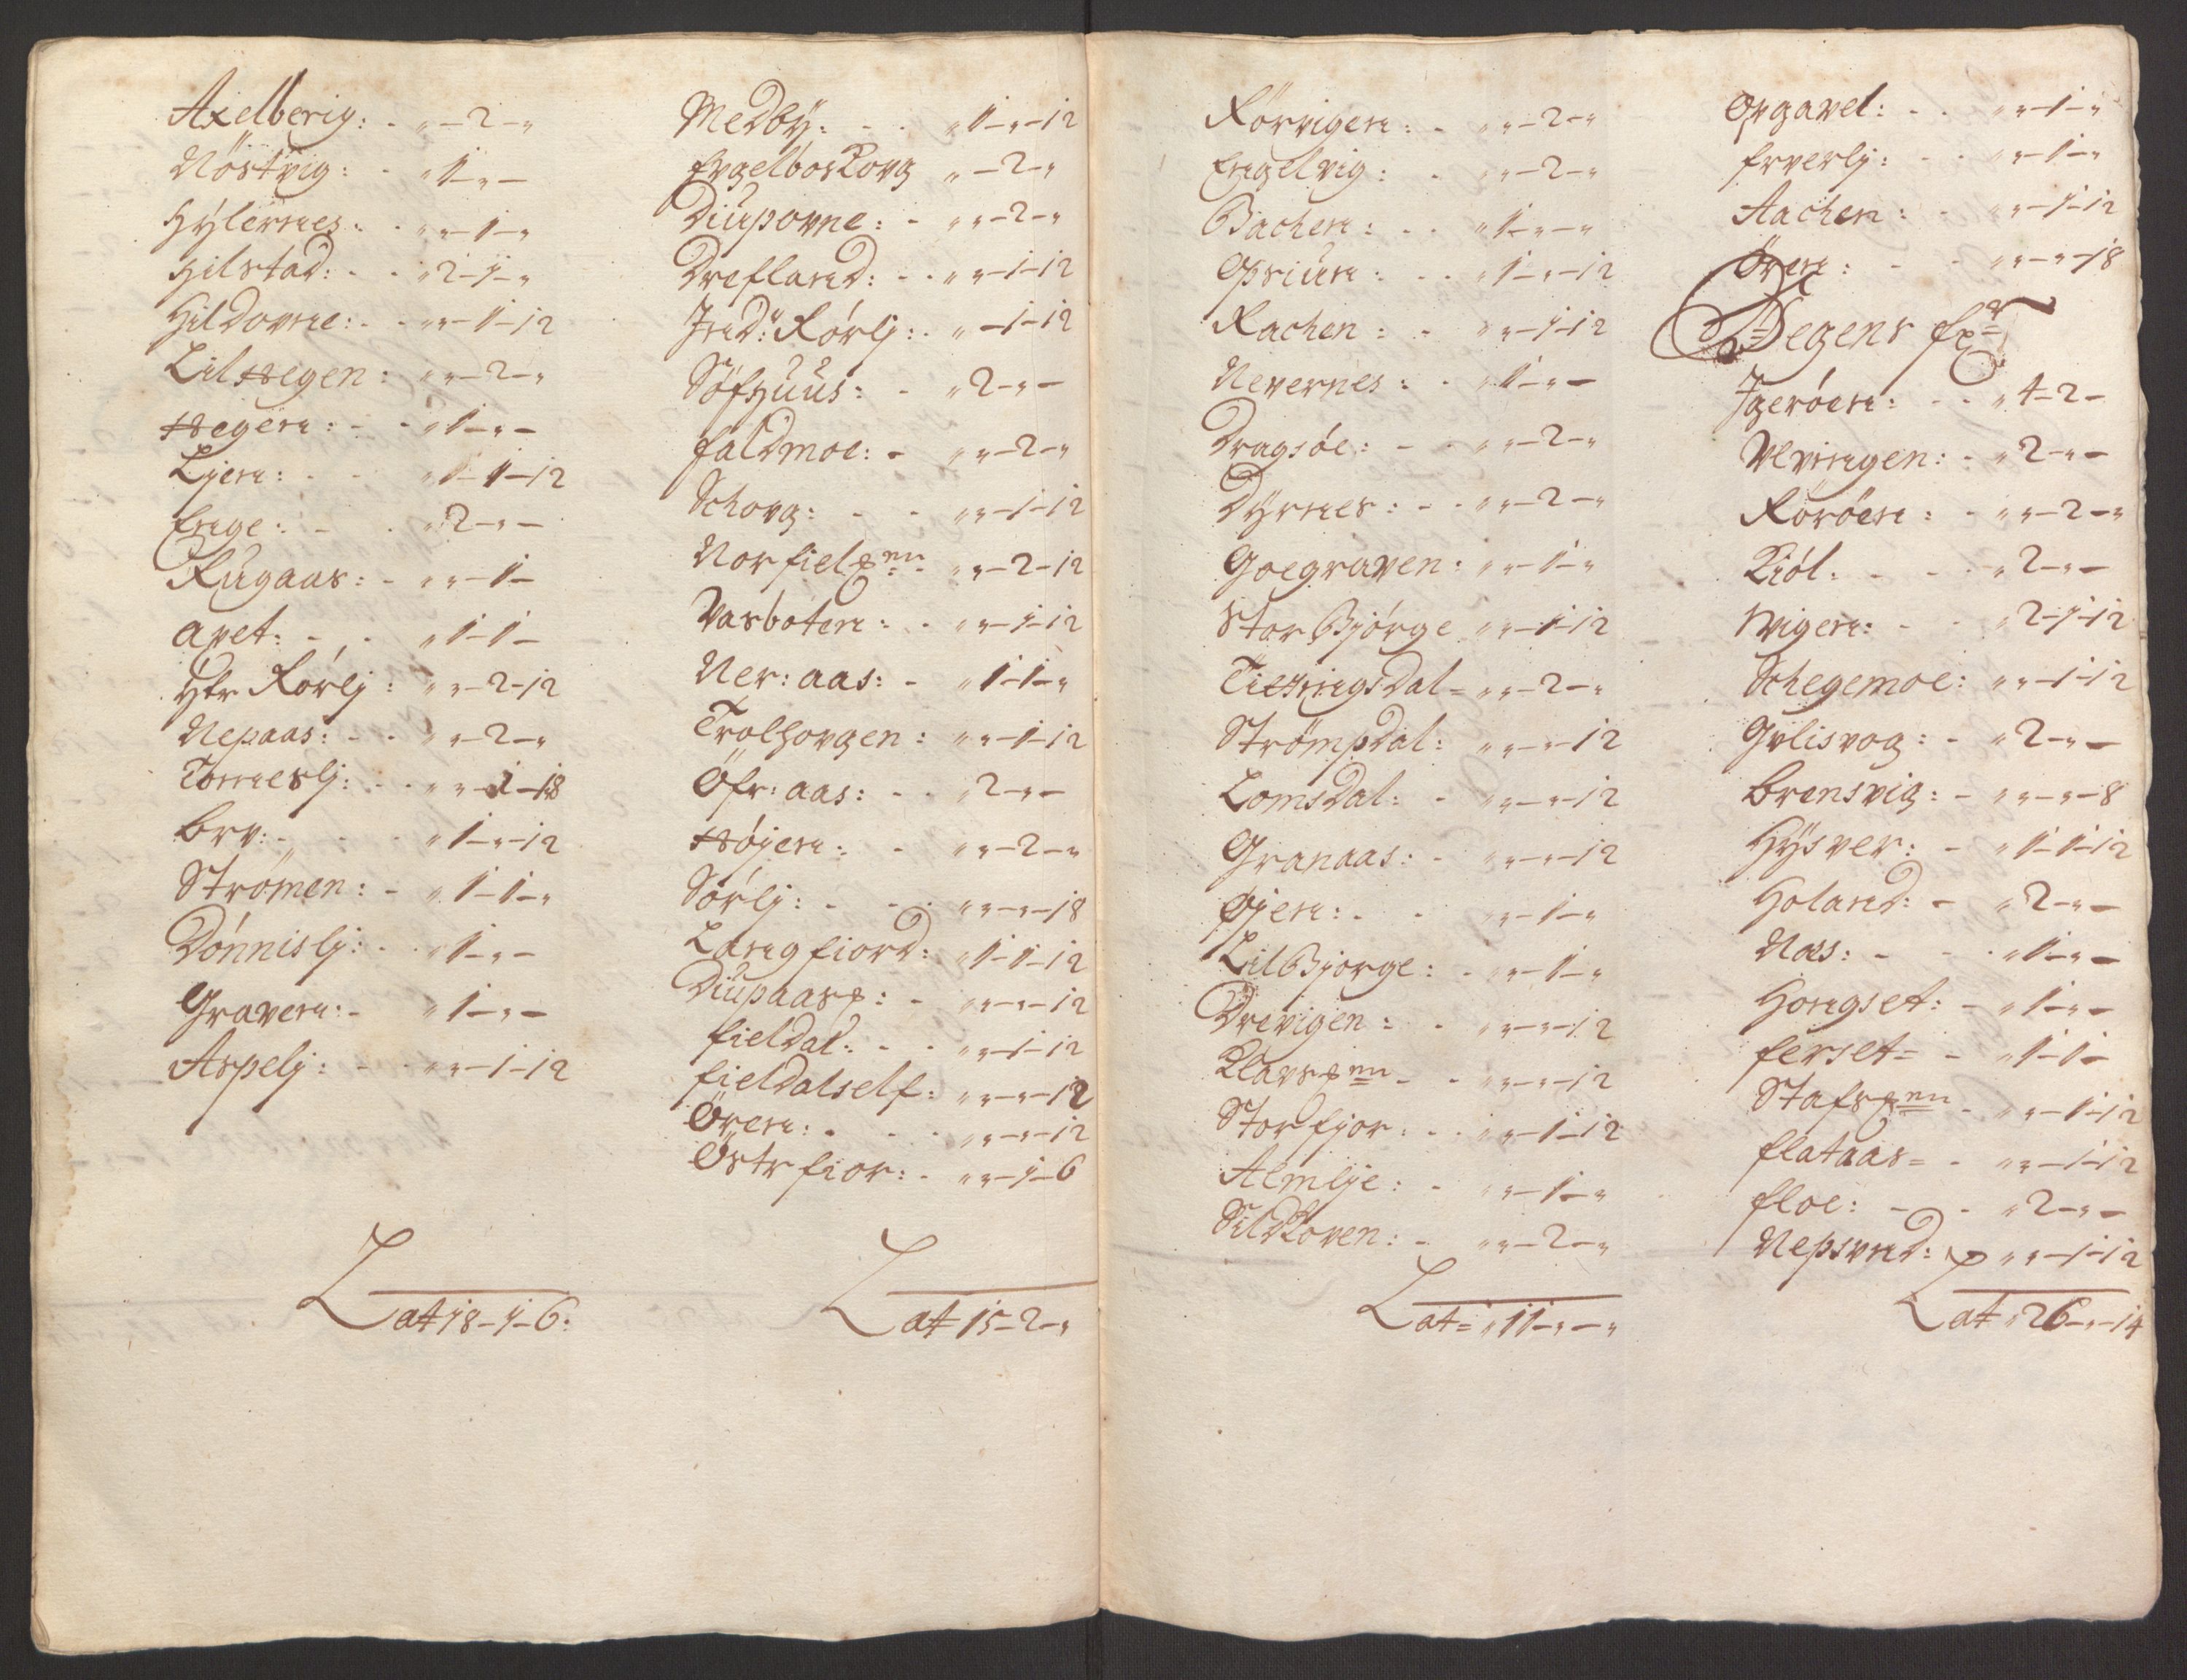 Axelberig: - „-2-„
Nöstvig: - „1-„-
Hÿlernes: - „„-1-„
Hilstad: - - „2-1-„
Hildovne: - „„-1-12
Lilhegen: „„-2-„
Hegen: - - „1-„-
Ljen: - - „1-1-12
Enge: - - „2-„-
Rugaas: - „„-1-
Apet: - - „1-1-
Ytr Rörlj: „„-2-12
Nepaas: - - „„-2-„
Torneslj: - - „„-1-18
Brv: - - „1-„-12
Strömen: - „1-1-„
Dönnislj: - - „1-„-
Graven: - „1-„-
Aspelj: - - „„-1-12
Lat 18-1-6:
Medbÿ: - - „1-„-12
Engelboskovg „-2-„
Diupovne: - „„-2-„
Drefland: - - „„-1-12
Ind: Rörlj: - „-1-12
Söfhuus: - „2-„-
faldmoe: - „„-2-„
Schovg: - - „„-1-12
Norfielpnn - „„-2-12
Vasboten: - „„-1-12
Ner: aas: - „1-1-„
Trolhovgen: „„-1-12
Öfr: aas: - - „2-„-
Höjen: - „„-2-„
Sörlj: - - - „„-„-18
Langfiord: „1-1-12
Diupaasp: - „„-„-12
fieldal: - - „„-1-12
fieldalself: „„-„-12
Ören: - - - „„-„-12
Östr fior: - „„-1-6
Lat 15-2-„
Rörvigen: - „„-2-„
Engelvig: - „„-2-„
Bachen: - - „1-„-„
Opsiun: - - „1-„-12
Rachen: - „„-1-12
Nevernes: - „1-„-
Dragsöe: - - „„-2-„
Dÿrnes: - - „„-2-„
Goegraven: „„-1-„
Stor Bjórge „„-1-12
Tietringsdal= „„-2-„
Strömpdal: „„-„-12
Lomsdal: - „„-„-12
Granaas: - „„-„-12
Öjen: - - „„-1-„
Lil Bjorge: - „„-1-„
Drevigen: - „„-„-12
Klavspnn - - „„-„-12
Storfjor: - - „„-1-12
Almlje: - „„-1-„
Sildhoven: - „„-2-„
Lat= „11-„-„
Opgavel: - - „„-1-„
Erverlj: - - „„-1-„
Aachen: - „„-1-12
Ören: - - „„-„-18
Degens fxr
Jgeröen: - - „4-2-
Ulvingen: - „2-„-
Röröen: - „„-2-„
Kiöl: - - - „2-„-
Wigen: - - „2-1-12
Schegemoe: „„-1-12
Gvlisvog: - „2-„-
Brensvig: - „„-„-8
Hÿsver: - „1-1-12
Holand: - „2-„-
Næs: - - - „1-„-
Hongset: - „1-„-
ferset= - „1-1-
Stafspnn - „„-1-12
flataas= - „„-1-12
floe: - - „2-„-
Nepsvnd: „„-1-12
Lat „26-„-14